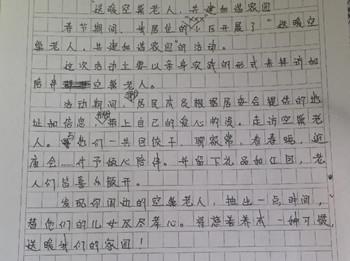 送暖空巢老人，共建和谐家园
春节期间，我居住的小区开展了"送暖空
巢老人，共建和谐家园"的活动。
这次活动主要以亲身实践的形式去拜访和
陪伴空巢老人。
活动期间，居民成员根据居委会提供的地
址和信息，带上自己的爱心的礼，走访空巢老
人。与他们一共包饺子，聊家常，看春晚，逛
庙会，给予悉心陪伴。并留下礼品和红包，老
人们皆喜上眉开。
发现你周边的空巢老人，抽出一点时间，
替他们的儿女尽尽孝心。将慈善养成一种习惯，
送暖我们的家园！